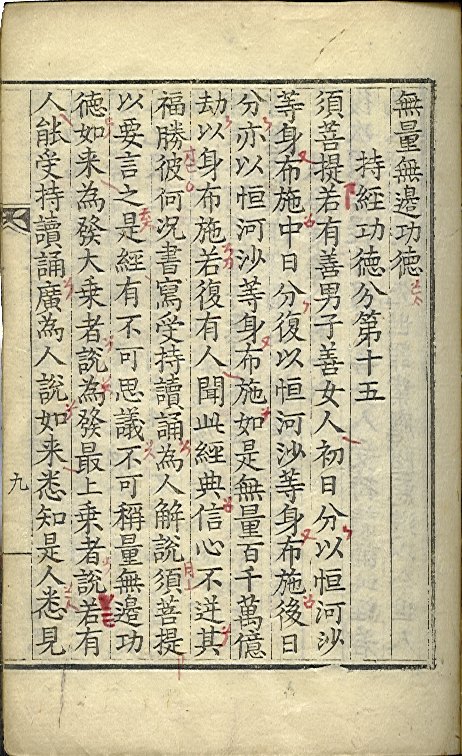 無量無邊功徳
持經功徳分第十五
須菩提若有善男子善女人初日分以恒河沙
等身布施中日分復以恒河沙等身布施後日
分亦以恒河沙等身布施如是無量百千萬億
劫以身布施若復有人聞此經典信心不逆其
福勝彼何况書寫受持讀誦為人解說須菩提
以要言之是經有不可思議不可稱量無邊功
徳如来為發大乗者說為發最上乗者說若有
人能受持讀誦廣為人說如来悉知是人悉見
九